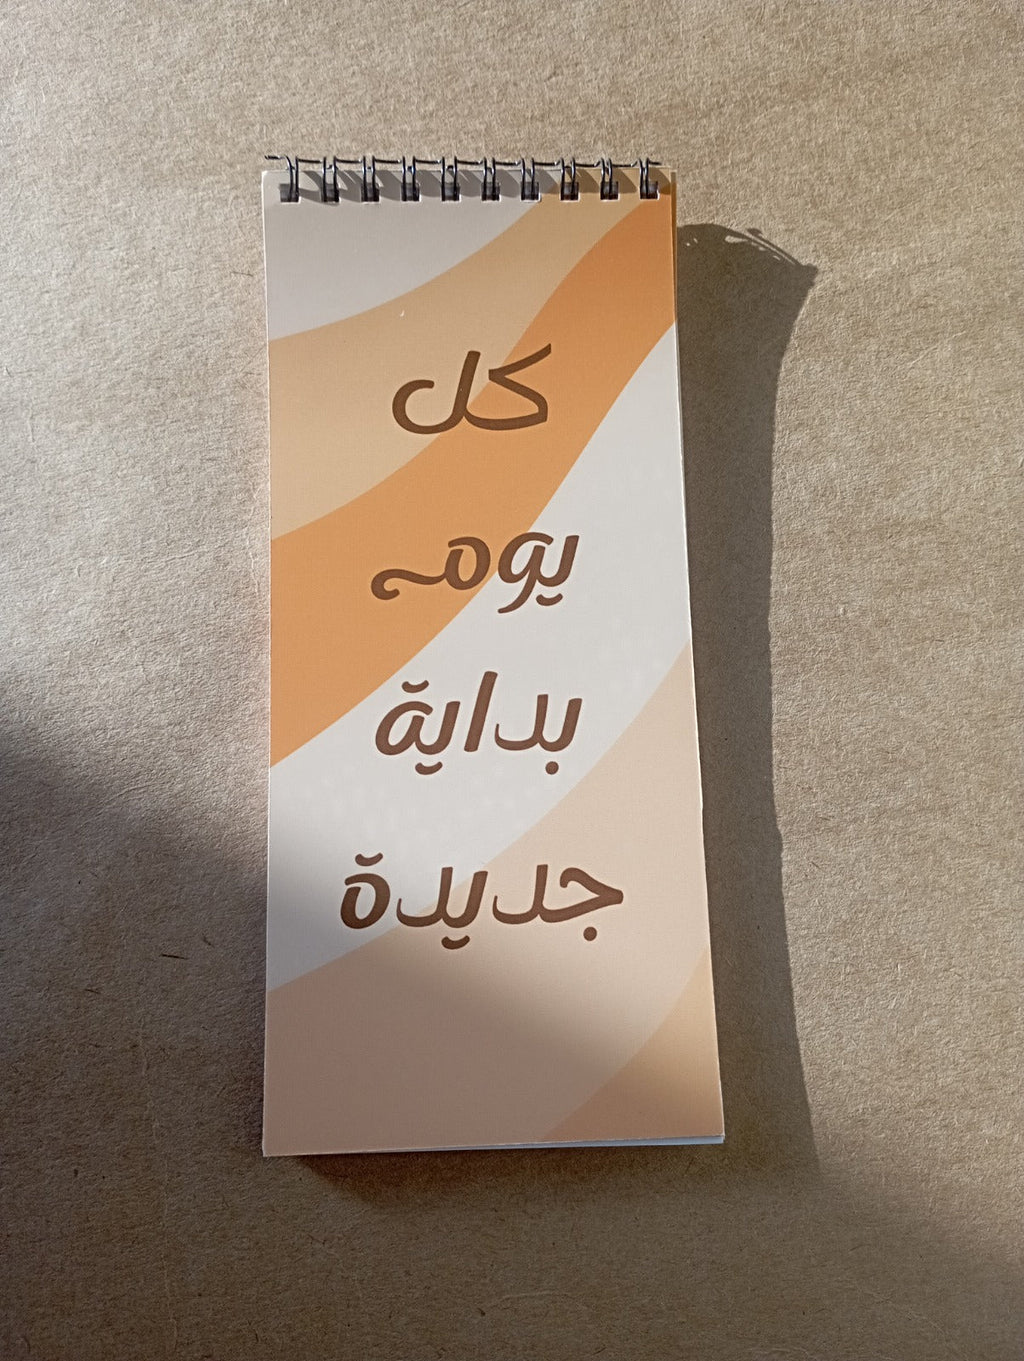 كل
يوم
بداية
جديدة